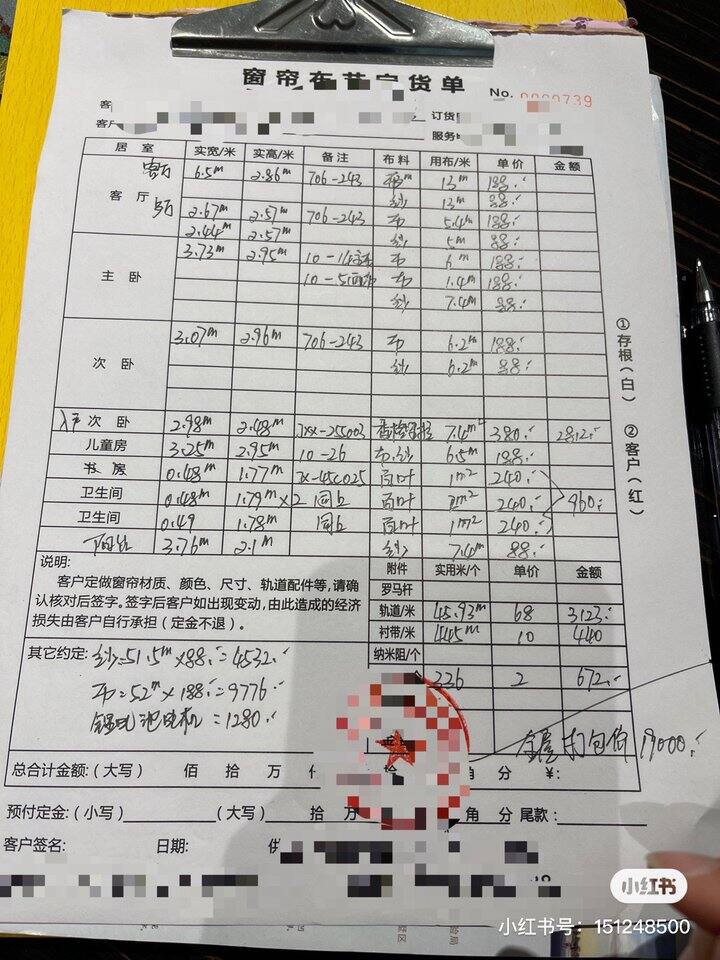 窗帘布艺定货单
No. 0000739
客
订货
客户
服务
居室 实宽/米 实高/米 备注 布料 用布/米 单价 金额
客厅 6.5m 2.86m 706-243 13m 188.
纱 13m 88.
客厅 2.67m 2.57m 706-243 布 5.4m 188.
2.44m 2.57m 纱 5m 88.
3.73m 2.95m 10-14 布 6m 188.
主卧 10-5 布 1.4m 188.
纱 7.4m 88.
3.07m 2.96m 706-243 布 6.2m 188.
次卧 纱 6.2m 88.
次卧 2.98m 2.48m 7.4m² 380. 2812.
儿童房 3.25m 2.95m 10-26 布.纱 6.5m 188.
书房 0.48m 1.77m 百叶 1m² 240.
卫生间 0.48m 1.79m×2 同上 百叶 2m² 240. 960.
卫生间 0.49 1.78m 同上 百叶 1m² 240.
3.76m 2.1m 纱 7.4m 88.
说明:
客户定做窗帘材质、颜色、尺寸、轨道配件等,请确
认核对后签字。签字后客户如出现变动,由此造成的经济
损失由客户自行承担(定金不退)。
附件 实用米/个 单价 金额
罗马杆
轨道/米 45.93m 68 3123.
衬带/米 44.5m 10 440
纳米阻/个
336 2 672.
其它约定: 纱=51.5m×88.=4532.
布=52m×188.=9776.
锂电池电机=1280.
全屋打包价 19000.
总合计金额:(大写) 佰 拾 万 仟 拾 角 分 ¥:
预付定金:(小写) (大写) 拾 万 角 分 尾款:
客户签名: 日期: 供
①存根(白)
②客户(红)
小红书
小红书号:151248500